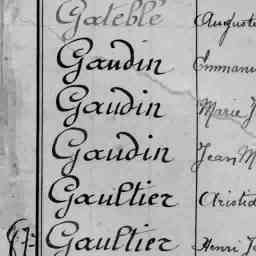 Gateblé Auguste
Gaudin Emmanu
Gaudin Marie J
Gaudin Jean M
Gaultier Aristid
87= Gaultier Henri Jo